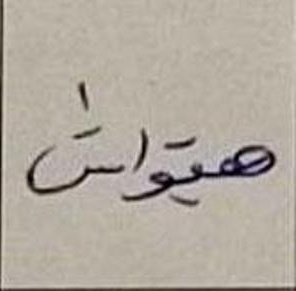 هيتواش